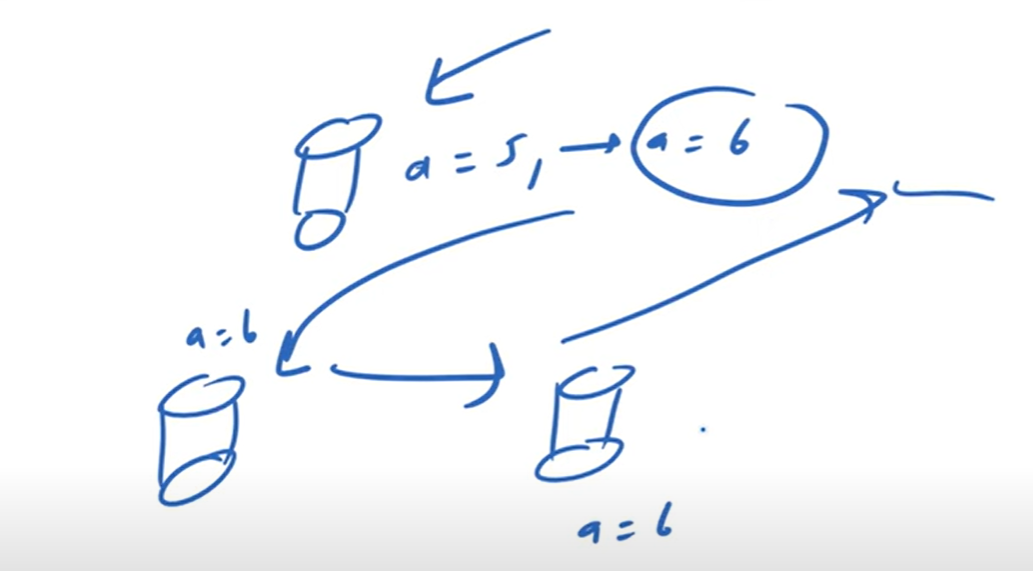 a = 5, → a = 6
a = 6
a = 6